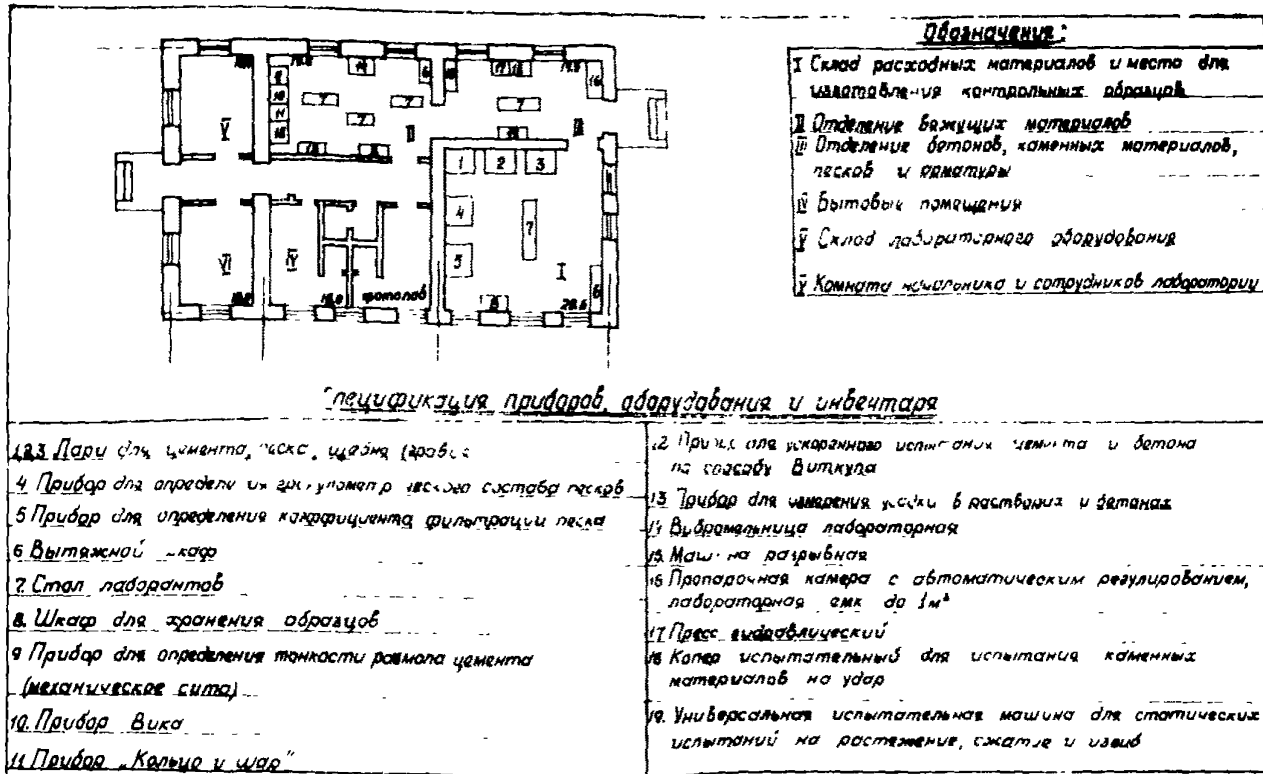 Обозначения:
I Склад расходных материалов и место для
изготовления контрольных образцов
II Отделение вяжущих материалов
III Отделение бетонов, каменных материалов,
песков и арматуры
IV Бытовые помещения
V Склад лабораторного оборудования
V Комната начальника и сотрудников лаборатории
V
II
III
1 2 3
4
5
7
VI
IV
I
фотолаб
8
6
28.6
Спецификация приборов, оборудования и инвентаря
1,2,3 Лари для цемента, песка, щебня (гравия
4 Прибор для определения гранулометрического состава песков
5 Прибор для определения коэффициента фильтрации песка
6 Вытяжной шкаф
7. Стол лаборантов
8. Шкаф для хранения образцов
9 Прибор для определения тонкости размола цемента
(механическое сито)
10. Прибор Вика
11 Прибор „Кольцо и шар"
12 для ускоренного испытания цемента и бетона
по способу
13 Прибор для измерения усадки в растворах и бетонах
Вибромельница лабораторная
15. Машина разрывная
16 Пропарочная камера с автоматическим регулированием,
лабораторная емк до 1м³
17 Пресс гидравлический
18 Копер испытательный для испытания каменных
материалов на удар
19. Универсальная испытательная машина для статических
испытаний на растяжение, сжатие и изгиб